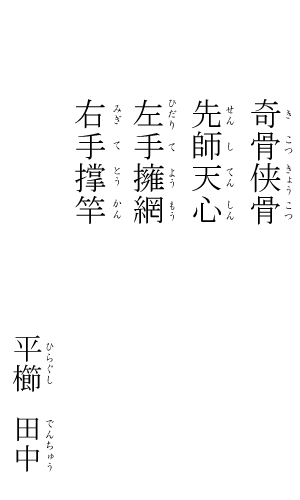 奇骨侠骨
きこつきょうこつ
先師天心
せんしてんしん
左手擁網
ひだりてようもう
右手撑竿
みぎてとうかん
平櫛 田中
ひらぐし でんちゅう